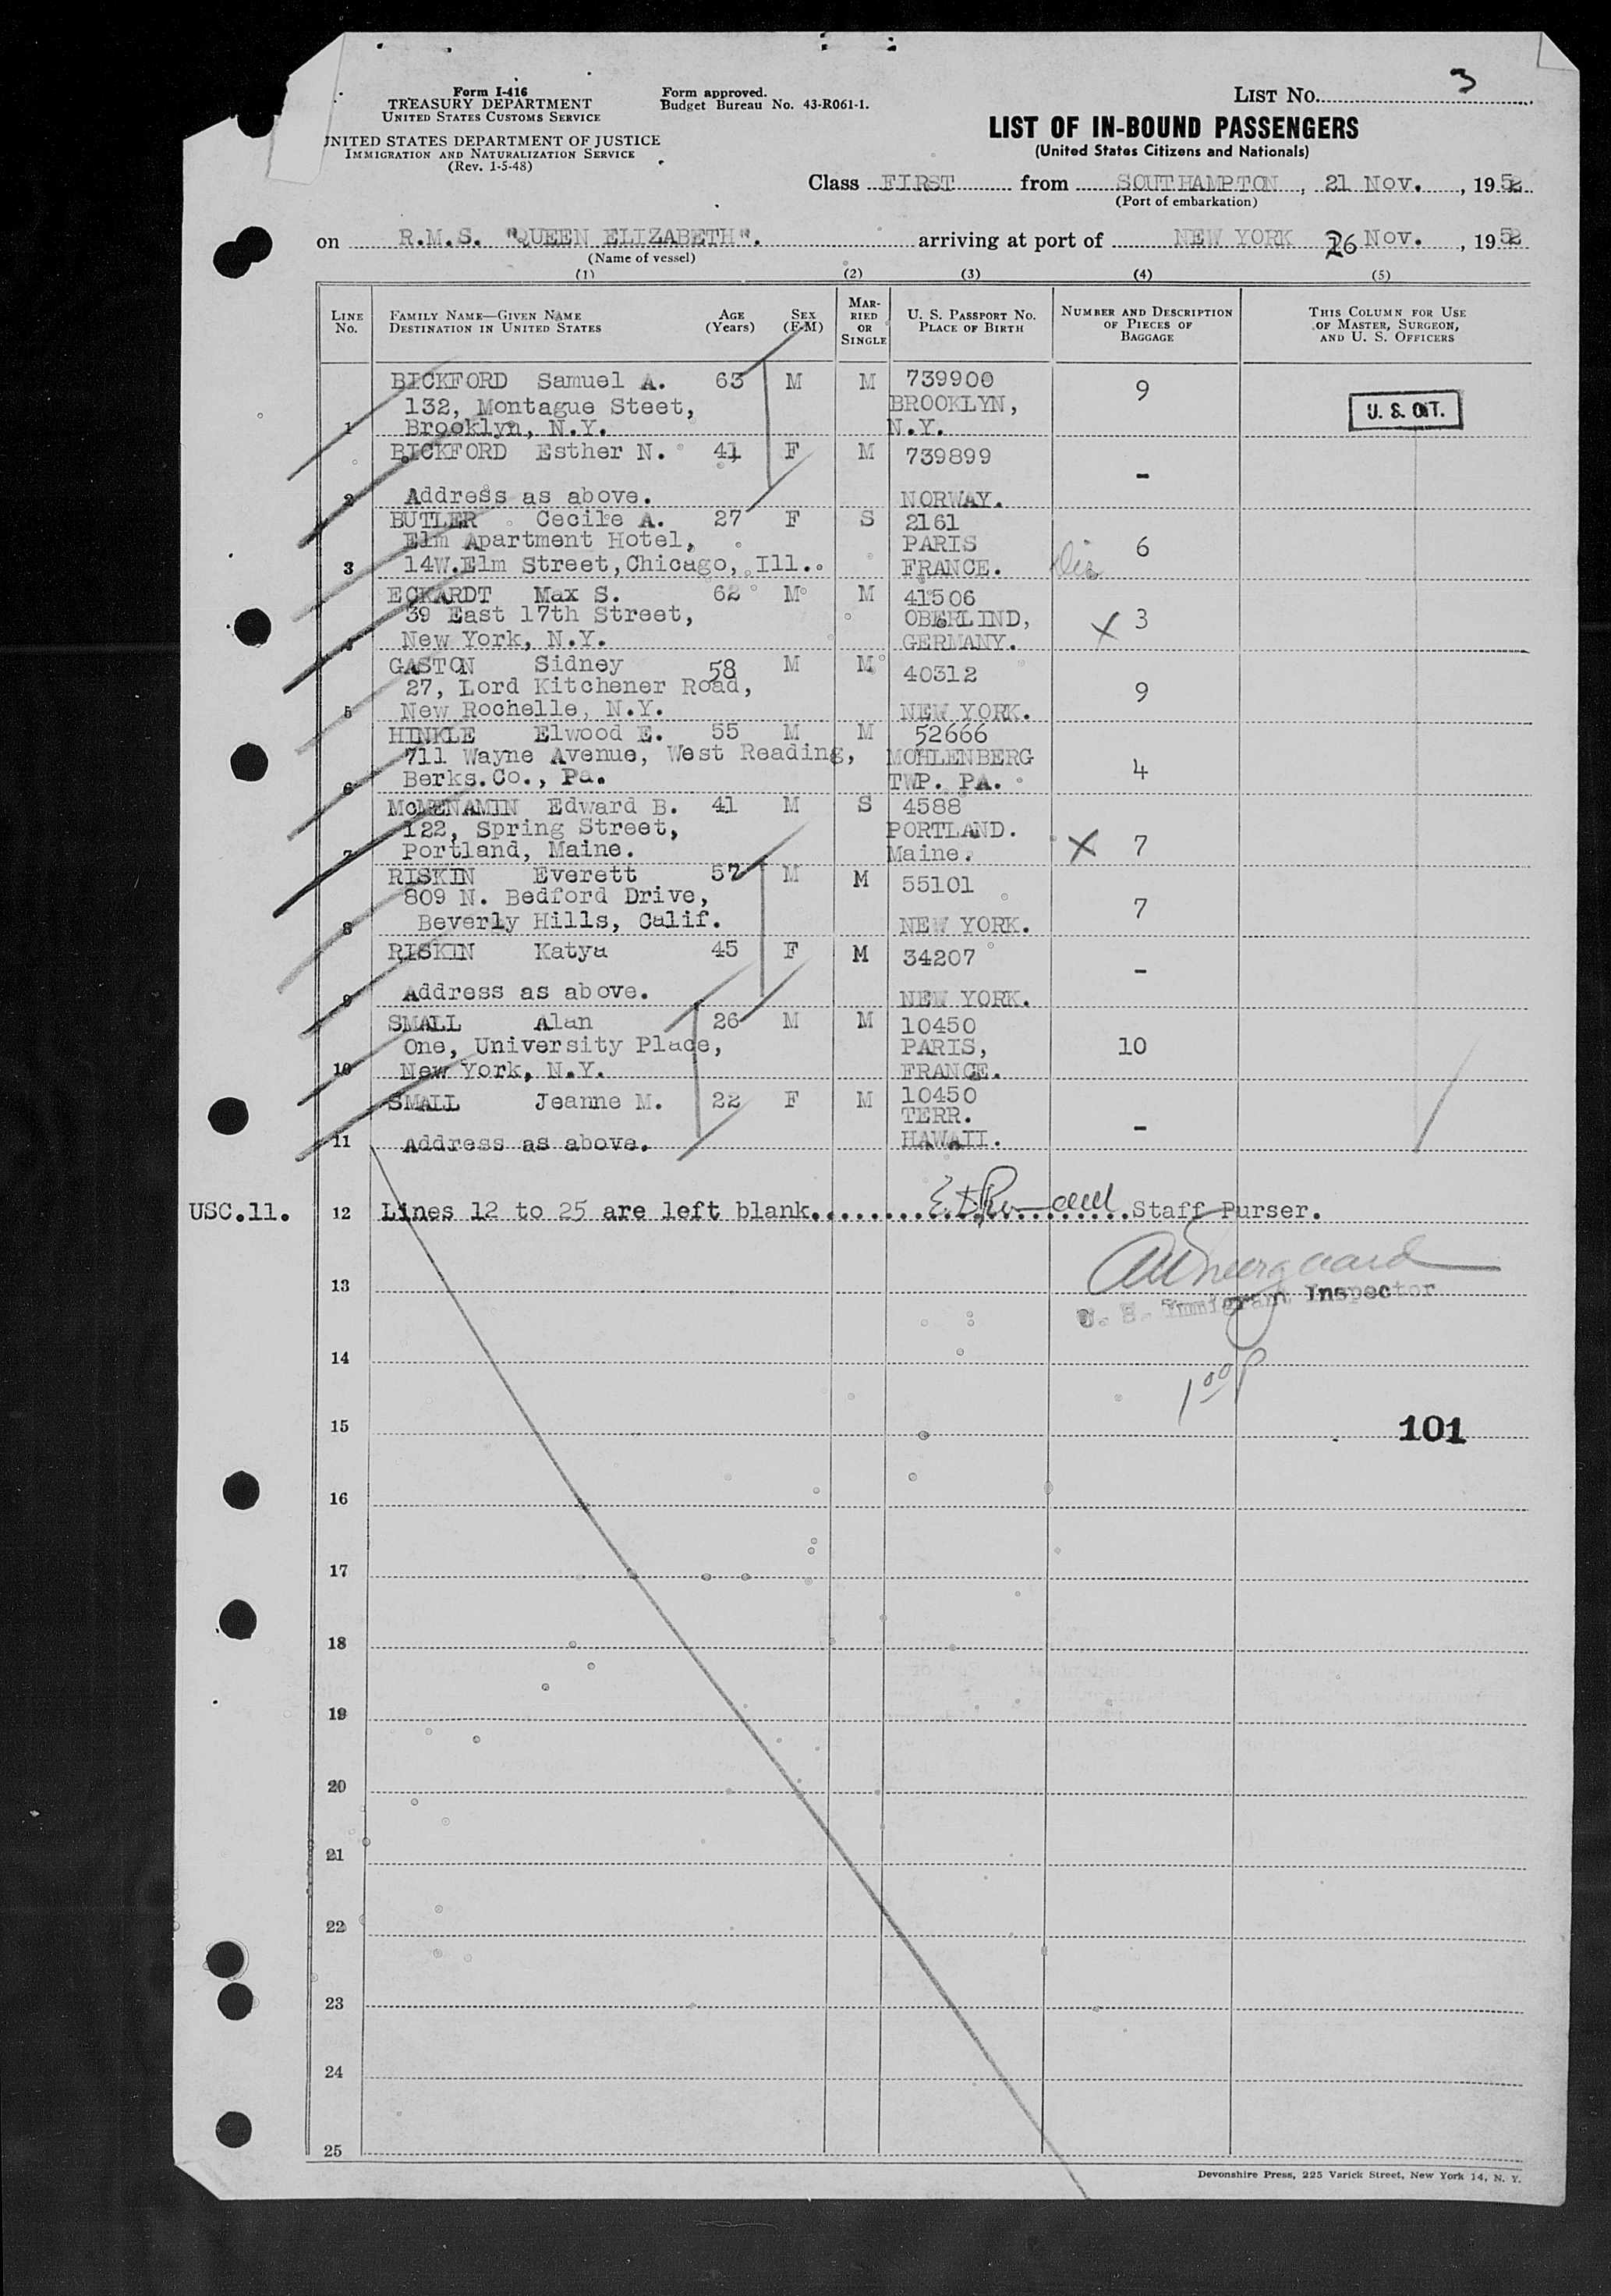 LIST No. 3
Form I-416
TREASURY DEPARTMENT
UNITED STATES CUSTOMS SERVICE
UNITED STATES DEPARTMENT OF JUSTICE
IMMIGRATION AND NATURALIZATION SERVICE
(Rev. 1-5-48)
Form approved.
Budget Bureau No. 43-R061-1.
LIST OF IN-BOUND PASSENGERS
(United States Citizens and Nationals)
Class FIRST from SOUTHAMPTON, 21 Nov., 1952
(Port of embarkation)
on R.M.S. "QUEEN ELIZABETH". arriving at port of NEW YORK 26 Nov., 1952
(Name of vessel)
(1) (2) (3) (4) (5)
LINE No. FAMILY NAME—GIVEN NAME DESTINATION IN UNITED STATES AGE (Years) SEX (F-M) MARRIED OR SINGLE U. S. PASSPORT No. PLACE OF BIRTH NUMBER AND DESCRIPTION OF PIECES OF BAGGAGE THIS COLUMN FOR USE OF MASTER, SURGEON, AND U. S. OFFICERS
BICKFORD Samuel A. 63 M M 739900 9
132, Montague Steet, BROOKLYN, U. S. CIT.
1 Brooklyn, N.Y. N.Y.
BICKFORD Esther N. 41 F M 739899 -
2 Address as above. NORWAY.
BUTLER Cecile A. 27 F S 2161
Elm Apartment Hotel, PARIS 6
3 14W.Elm Street,Chicago, Ill.. FRANCE.
ECKARDT Max S. 62 M M 41506
39 East 17th Street, OBERLIND, X 3
4 New York, N.Y. GERMANY.
GASTON Sidney 58 M M 40312
27, Lord Kitchener Road, 9
5 New Rochelle, N.Y. NEW YORK.
HINKLE Elwood E. 55 M M 52666
711 Wayne Avenue, West Reading, MOHLENBERG 4
6 Berks.Co., Pa. TWP. PA.
McMENAMIN Edward B. 41 M S 4588
122, Spring Street, PORTLAND. X 7
7 Portland, Maine. Maine.
RISKIN Everett 57 M M 55101
809 N. Bedford Drive, 7
8 Beverly Hills, Calif. NEW YORK.
RISKIN Katya 45 F M 34207 -
9 Address as above. NEW YORK.
SMALL Alan 26 M M 10450
One, University Place, PARIS, 10
10 New York, N.Y. FRANCE.
SMALL Jeanne M. 22 F M 10450
TERR. -
11 Address as above. HAWAII.
USC.11. 12 Lines 12 to 25 are left blank. Staff Purser.
13 U. S. Immigrant Inspector
14
15 101
16
17
18
19
20
21
22
23
24
25
Devonshire Press, 225 Varick Street, New York 14, N. Y.